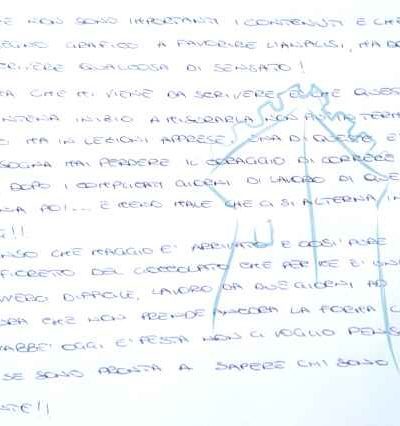 E NON SONO IMPORTANTI I CONTENUTI E CHE
SEGNO GRAFICO A FAVORIRE L'ANALISI, MA DO
SCRIVERE QUALCOSA DI SENSATO!
CHE MI VIENE DA SCRIVERE E CHE QUES
INIZIO A MISURARLA NON TERM
MA IN LEZIONI APPRESE. UNA DI QUESTE E'
SOGNA MAI PERDERE IL CORAGGIO DI CORRERE
DOPO I COMPLICATI GIORNI DI LAVORO DI QUE
POI.... E MENO MALE CHE CI SI ALTERNA IN
!!
NSO CHE MAGGIO E' ARRIVATO E COSI' PURE
FIORETTO DEL CIOCCOLATO CHE PER ME E' UN
VERO DIFFICILE, LAVORO DA DUE GIORNI AD
ORA CHE NON PRENDE ANCORA LA FORMA C
VABBE' OGGI E' FESTA NON CI VOGLIO PENS
SE SONO PRONTA A SAPERE CHI SONO
NTE!!